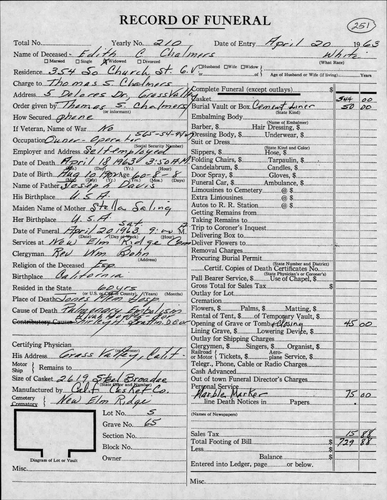 RECORD OF FUNERAL
251
Total No. Yearly No. 210 Date of Entry April 20 1963
Name of Deceased Edith C Chalmers White
Married Single Widowed Divorced (What Race)
Residence 354 So Church St G.V. Husband Wife Widow
Age of Husband or Wife (if living) Years
Charge to Thomas S Chalmers
Address 5 Delores Dr. Grass Valley
Order given by Thomas S. Chalmers
or informant)
How Secured phone
If Veteran, Name of War No
Occupation Owner-Opera
(Social Security Number)
Employer and Address Self employed
Date of Death April 18 1963 3:50 AM
Date of Birth Aug 10
Name of Father Joseph L Davis
His Birthplace U.S.A
Maiden Name of Mother Stella Seling
Her Birthplace U.S.A
Date of Funeral April 20 1963 Sat
Services at New Elm Ridge Cem
Clergyman Rev Wm Bohn
Religion of the Deceased Epp
Birthplace California
Resided in the State 60 yrs
Place of Death Jones Mem Hosp
Cause of Death Pulmonary Embolism
Contributory Cause
Certifying Physician
His Address Grass Valley, Calif.
Motor Ship Remains to
Size of Casket 2619 Steel Broadcl
Manufactured by Calif Casket Co.
Cemetery Crematory New Elm Ridge
Lot No. 5
Grave No. 65
Section No.
Block No.
Owner
Diagram of Lot or Vault
Misc.
Complete Funeral (except outlays) $
Casket 344 00
Burial Vault or Box Cement Liner 50 00
(State Kind)
Embalming Body
(Name of Embalmer)
Barber, $ Hair Dressing, $
Dressing Body, $ Underwear, $
Suit or Dress
(State Kind and Color)
Slippers, $ Hose, $
Folding Chairs, $ Tarpaulin, $
Candelabrum, $ Candles, $
Door Spray, $ Gloves, $
Funeral Car, $ Ambulance, $
Limousines to Cemetery @ $
Extra Limousines @ $
Autos to R. R. Station @ $
Getting Remains from
Taking Remains to
Trip to Coroner's Inquest
Delivering Box to
Deliver Flowers to
Removal Charges
Procuring Burial Permit
(State Number and District)
Certif. Copies of Death Certificates No.
(State Physician's or Coroner's)
Pall Bearer Service, $ Use of Chapel, $
Gross Total for Sales Tax $
Outlay for Lot
Cremation
Flowers, $ Palms, $ Matting, $
Rental of Tent, $ of Temporary Vault, $
Opening of Grave or Tomb Closing 45 00
Lining Grave, $ Lowering Device, $
Outlay for Shipping Charges
Clergymen, $ Singers, $ Organist, $
Railroad or Motor Tickets, $ Aeroplane Service, $
Telegr., Phone, Cable or Radio Charges
Cash Advanced
Out of town Funeral Director's Charges
Personal Service
Marble Marker 75 00
line Death Notices in Papers
(Names of Newspapers)
Sales Tax 15 88
Total Footing of Bill $ 729 88
Less
Balance $
Entered into Ledger, page or below.
Misc.